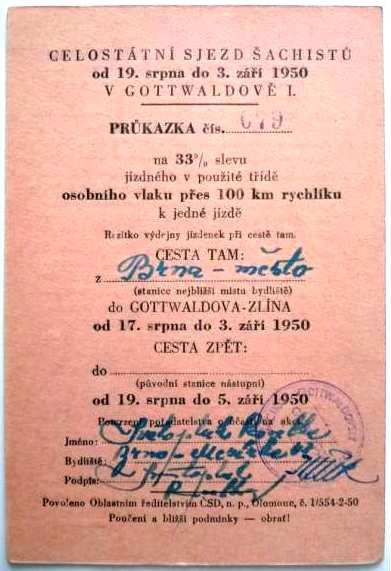 CELOSTÁTNÍ SJEZD ŠACHISTŮ
od 19. srpna do 3. září 1950
V GOTTWALDOVĚ I.
PRŮKAZKA čís. 679
na 33% slevu
jízdného v použité třídě
osobního vlaku přes 100 km rychlíku
k jedné jízdě
Razítko výdejny jízdenek při cestě tam.
CESTA TAM:
z Brna-město
(stanice nejbližší místu bydliště)
do GOTTWALDOVA-ZLÍNA
od 17. srpna do 3. září 1950
CESTA ZPĚT:
do
(původní stanice nástupní)
od 19. srpna do 5. září 1950
Potvrzení pořadatelstva o účasti na akci
Jméno:
Bydliště: Brno-
Podpis:
Povoleno Oblastním ředitelstvím ČSD, n. p., Olomouc, č. 1/554-2-50
Poučení a bližší podmínky — obrať!